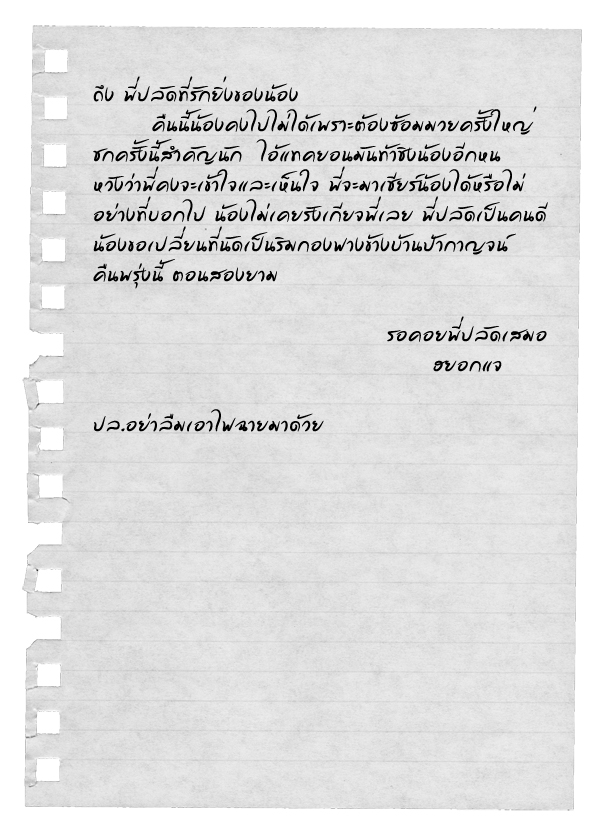 ถึง พี่ปลัดที่รักยิ่งของน้อง
คืนนี้น้องคงไปไม่ได้เพราะต้องซ้อมมวยครั้งใหญ่
ชกครั้งนี้สำคัญนัก ไอ้แทคยอนมันท้าชิงน้องอีกหน
หวังว่าพี่คงจะเข้าใจและเห็นใจ พี่จะมาเชียร์น้องได้หรือไม่
อย่างที่บอกไป น้องไม่เคยรังเกียจพี่เลย พี่ปลัดเป็นคนดี
น้องขอเปลี่ยนที่นัดเป็นริมกองฟางข้างบ้านป้ากาญจน์
คืนพรุ่งนี้ ตอนสองยาม
รอคอยพี่ปลัดเสมอ
ฮยอกแจ
ปล.อย่าลืมเอาไฟฉายมาด้วย